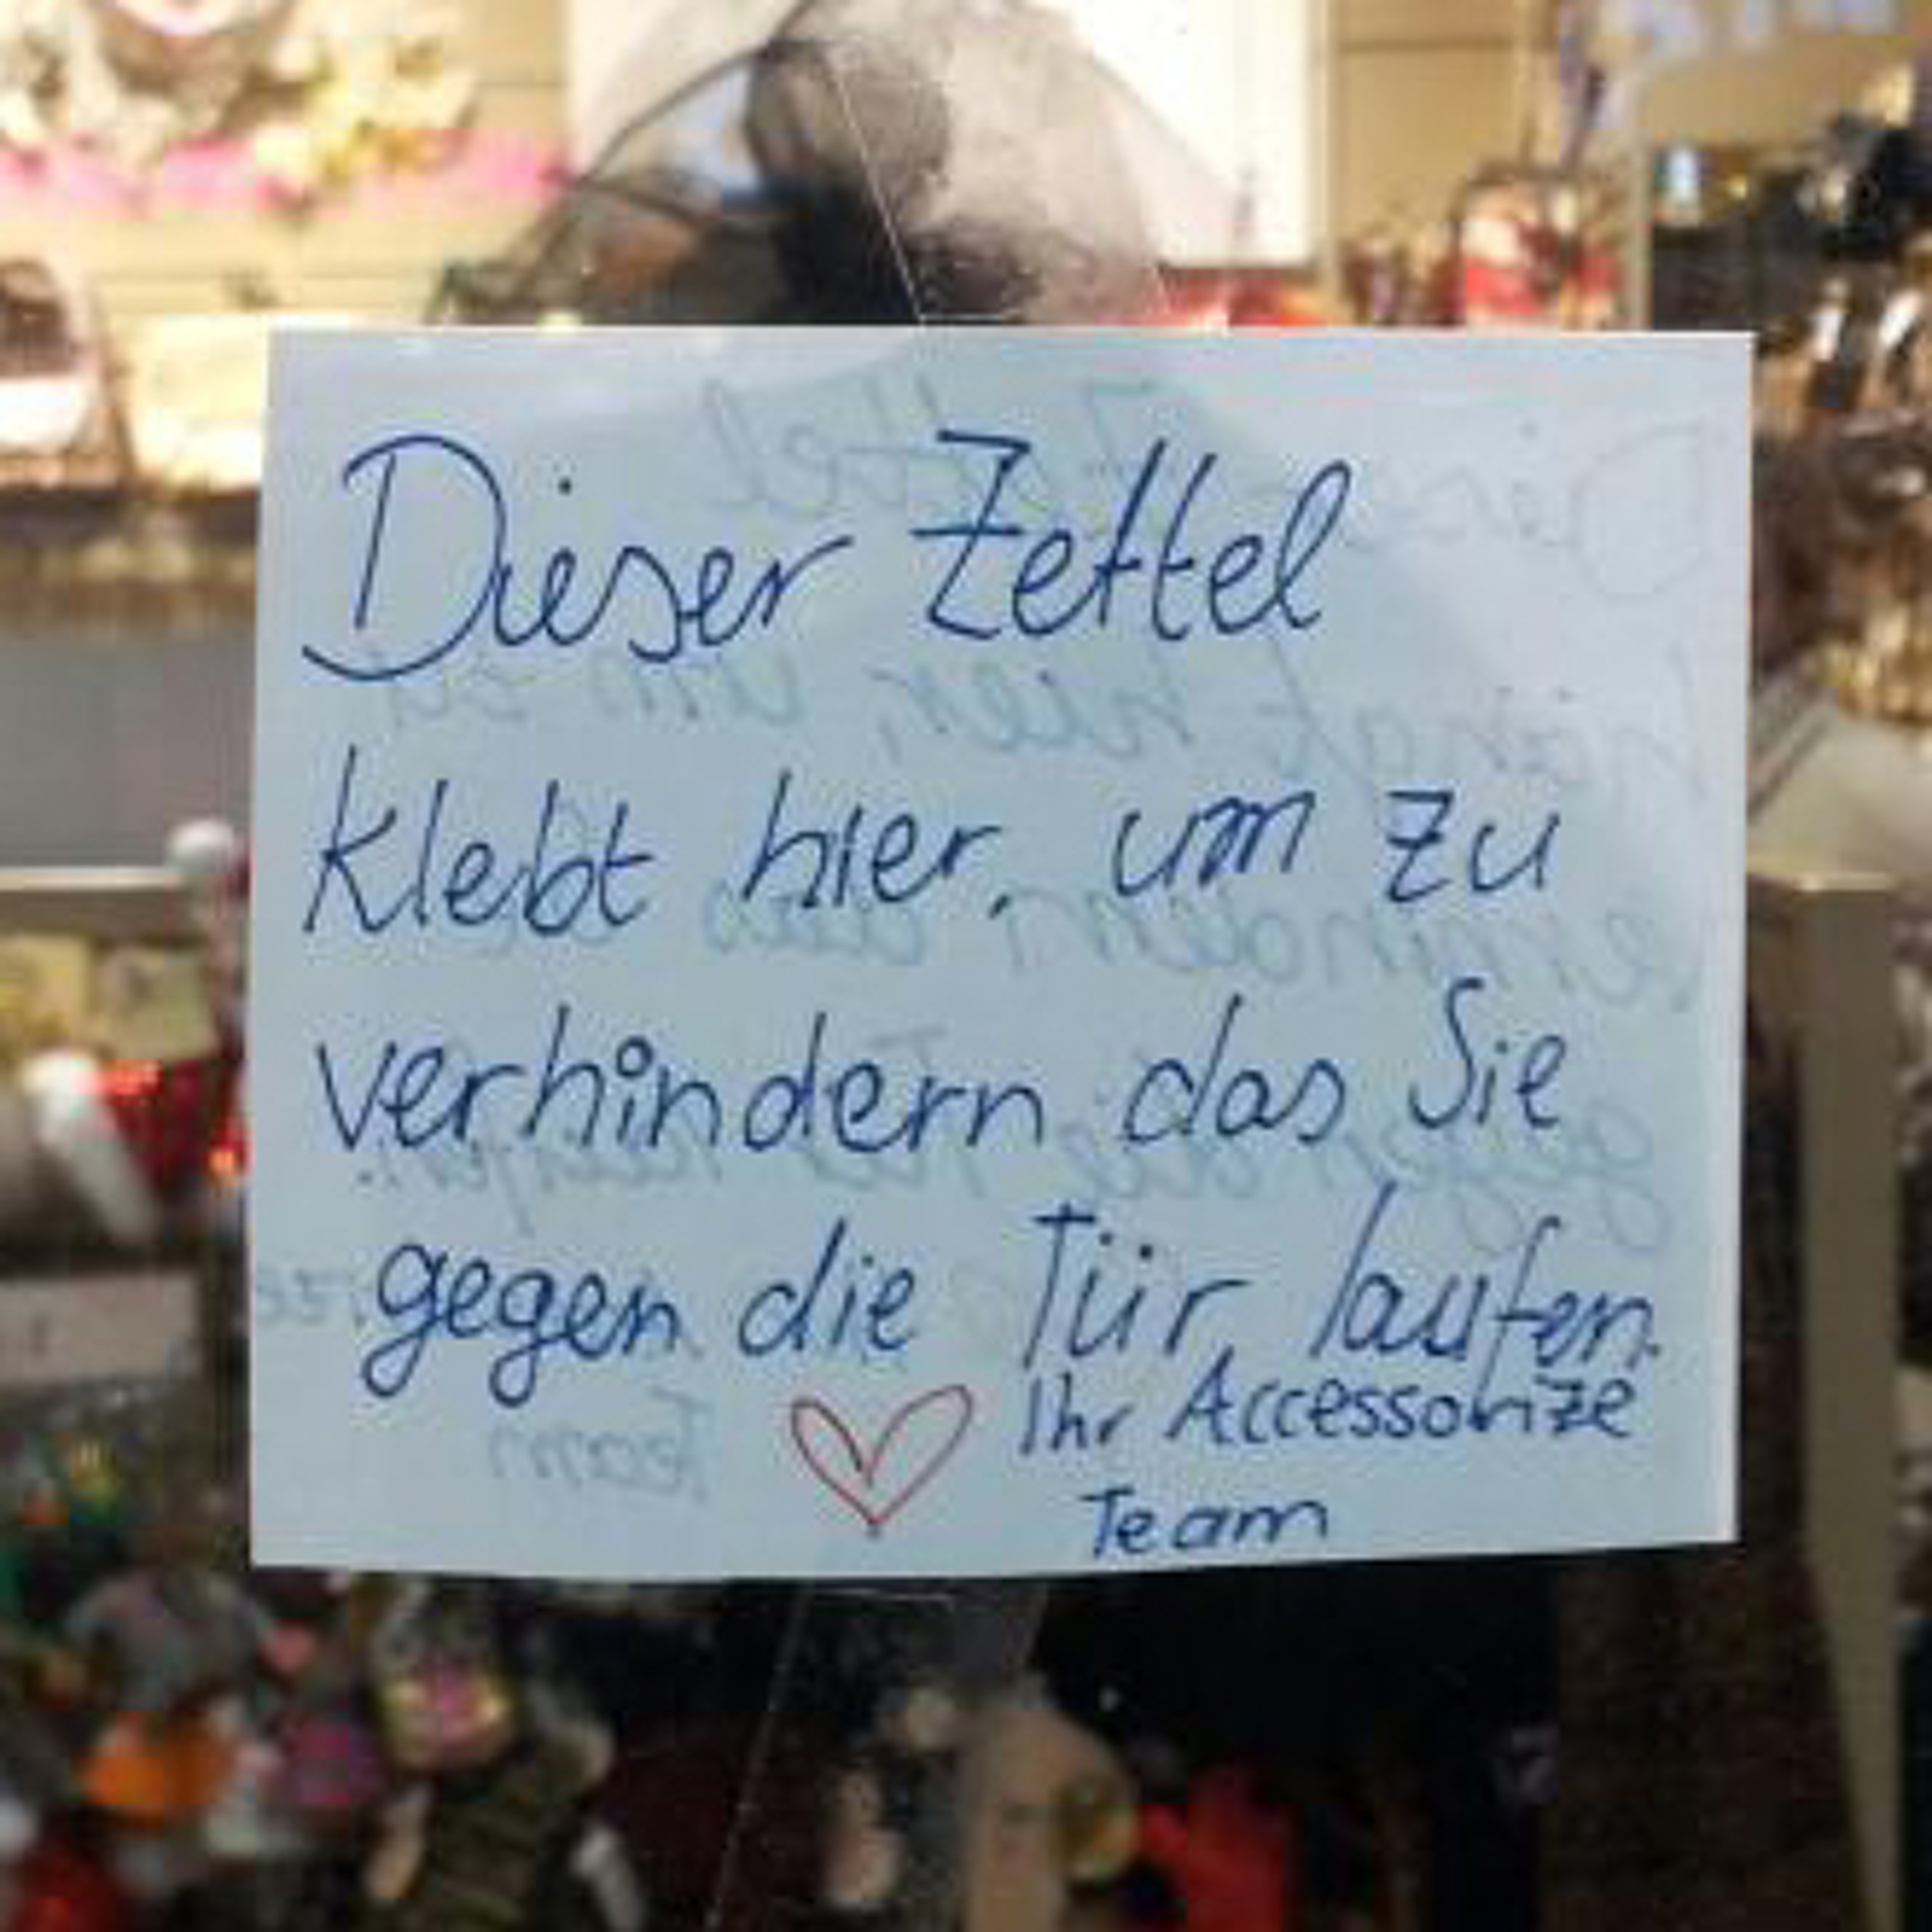 Dieser Zettel
klebt hier, um zu
verhindern das Sie
gegen die Tür laufen.
Ihr Accessorize
Team